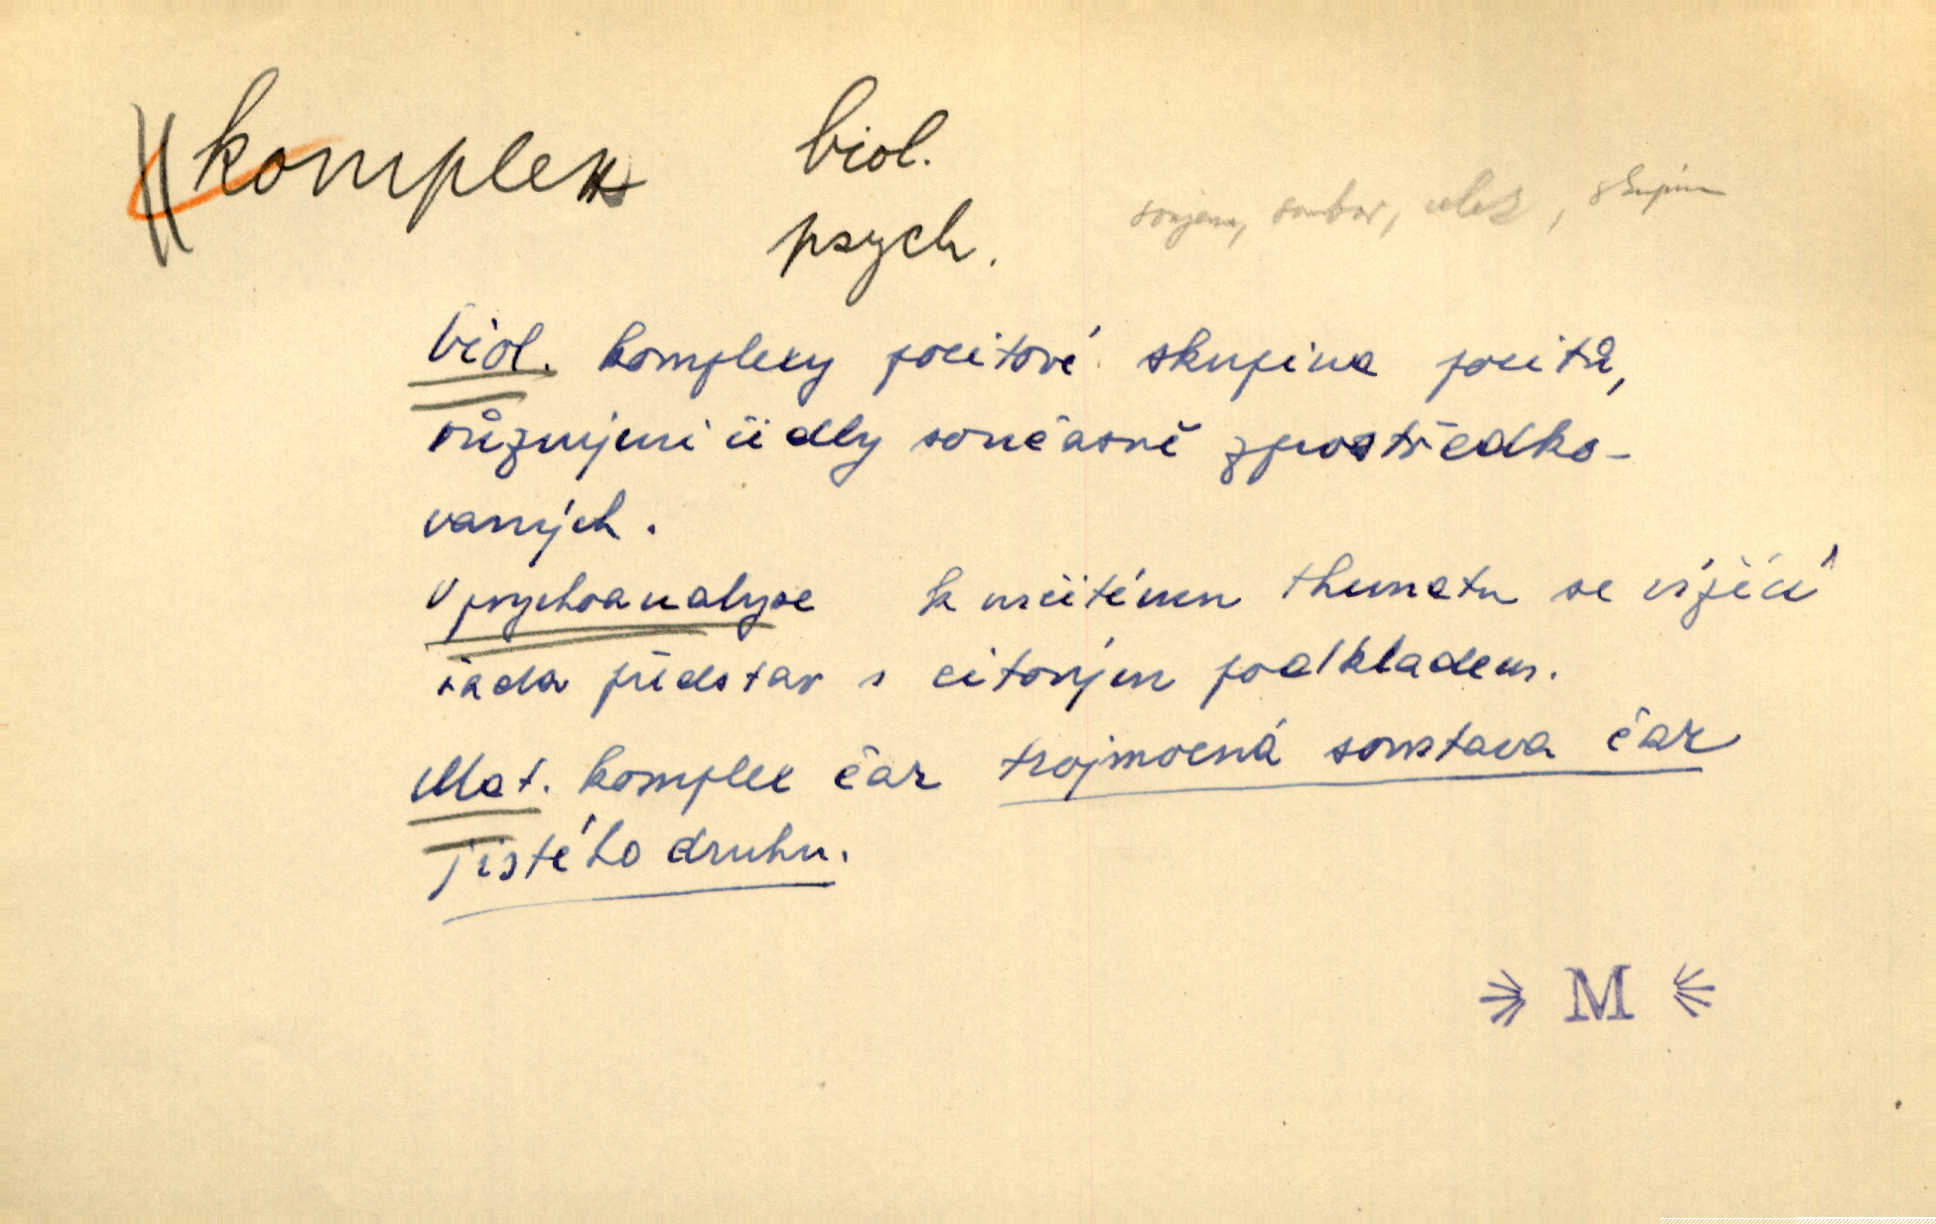 komplex biol.
psych.
soujem, soubor, celek, skupina
biol. komplexy pocitové skupina pocitů,
různými čidly současně zprostředko-
vaných.
V psychoanalyse k určitému thematu se vížící
řada představ s citovým podkladem.
Mat. komplex čar trojmocná soustava čar
jistého druhu.
M